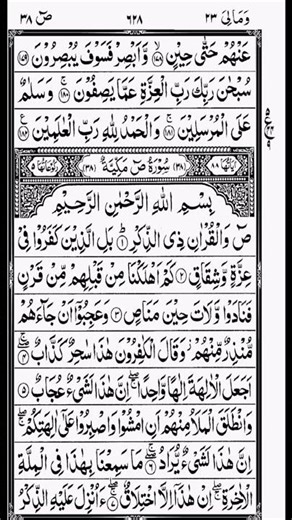 وَمَالِیَ ٢٣ ٦٢٨ صٓ ٣٨
عَنْهُمْ حَتّٰى حِيْنٍ ۙ﴿١٧٨﴾ وَّاَبْصِرْ فَسَوْفَ يُبْصِرُوْنَ ﴿١٧٩﴾
سُبْحٰنَ رَبِّكَ رَبِّ الْعِزَّةِ عَمَّا يَصِفُوْنَ ۚ﴿١٨٠﴾ وَسَلٰمٌ
عَلَى الْمُرْسَلِيْنَ ۚ﴿١٨١﴾ وَالْحَمْدُ لِلّٰهِ رَبِّ الْعٰلَمِيْنَ ﴿١٨٢﴾
اٰيَاتُهَا ٨٨ (٣٨) سُوْرَةُ صٓ مَكِّيَّةٌ (٣٨) رُكُوْعَاتُهَا ٥
بِسْمِ اللّٰهِ الرَّحْمٰنِ الرَّحِيْمِ
صٓ وَالْقُرْاٰنِ ذِى الذِّكْرِ ؕ﴿١﴾ بَلِ الَّذِيْنَ كَفَرُوْا فِىْ
عِزَّةٍ وَّشِقَاقٍ ﴿٢﴾ كَمْ اَهْلَكْنَا مِنْ قَبْلِهِمْ مِّنْ قَرْنٍ
فَنَادَوْا وَّلَاتَ حِيْنَ مَنَاصٍ ﴿٣﴾ وَعَجِبُوْۤا اَنْ جَآءَهُمْ
مُّنْذِرٌ مِّنْهُمْ ؗ وَقَالَ الْكٰفِرُوْنَ هٰذَا سٰحِرٌ كَذَّابٌ ۖۚ﴿٤﴾
اَجَعَلَ الْاٰلِهَةَ اِلٰهًا وَّاحِدًا ۖۚ اِنَّ هٰذَا لَشَىْءٌ عُجَابٌ ﴿٥﴾
وَانْطَلَقَ الْمَلَاُ مِنْهُمْ اَنِ امْشُوْا وَاصْبِرُوْا عَلٰٓى اٰلِهَتِكُمْ ۖۚ
اِنَّ هٰذَا لَشَىْءٌ يُّرَادُ ۖۚ﴿٦﴾ مَا سَمِعْنَا بِهٰذَا فِى الْمِلَّةِ
الْاٰخِرَةِ ۖۚ اِنْ هٰذَاۤ اِلَّا اخْتِلَاقٌ ۖۚ﴿٧﴾ ءَاُنْزِلَ عَلَيْهِ الذِّكْرُ